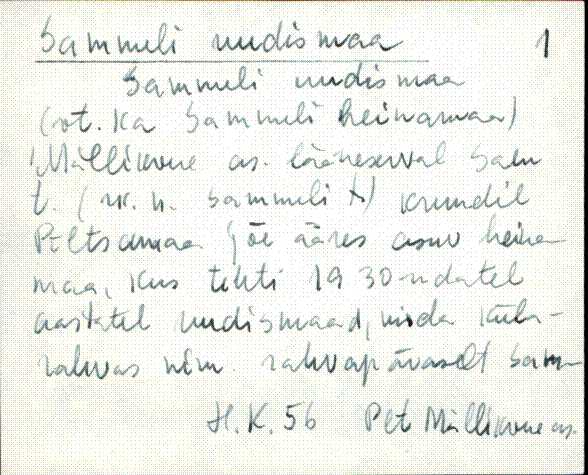 Sammeli uudismaa 1
Sammeli uudismaa
(vt. ka Sammeli heinamaa)
Mällikvere as. lääneserval Sam
t. (n.n. Sammeli t.) krundil
Põltsamaa jõe ääres asuv heina
maa, kus tehti 1930-ndatel
aastatel uudismaad, mida küla-
rahvas nim. rahvapäraselt Sam-
H.K. 56 Plt Mällikvere as.